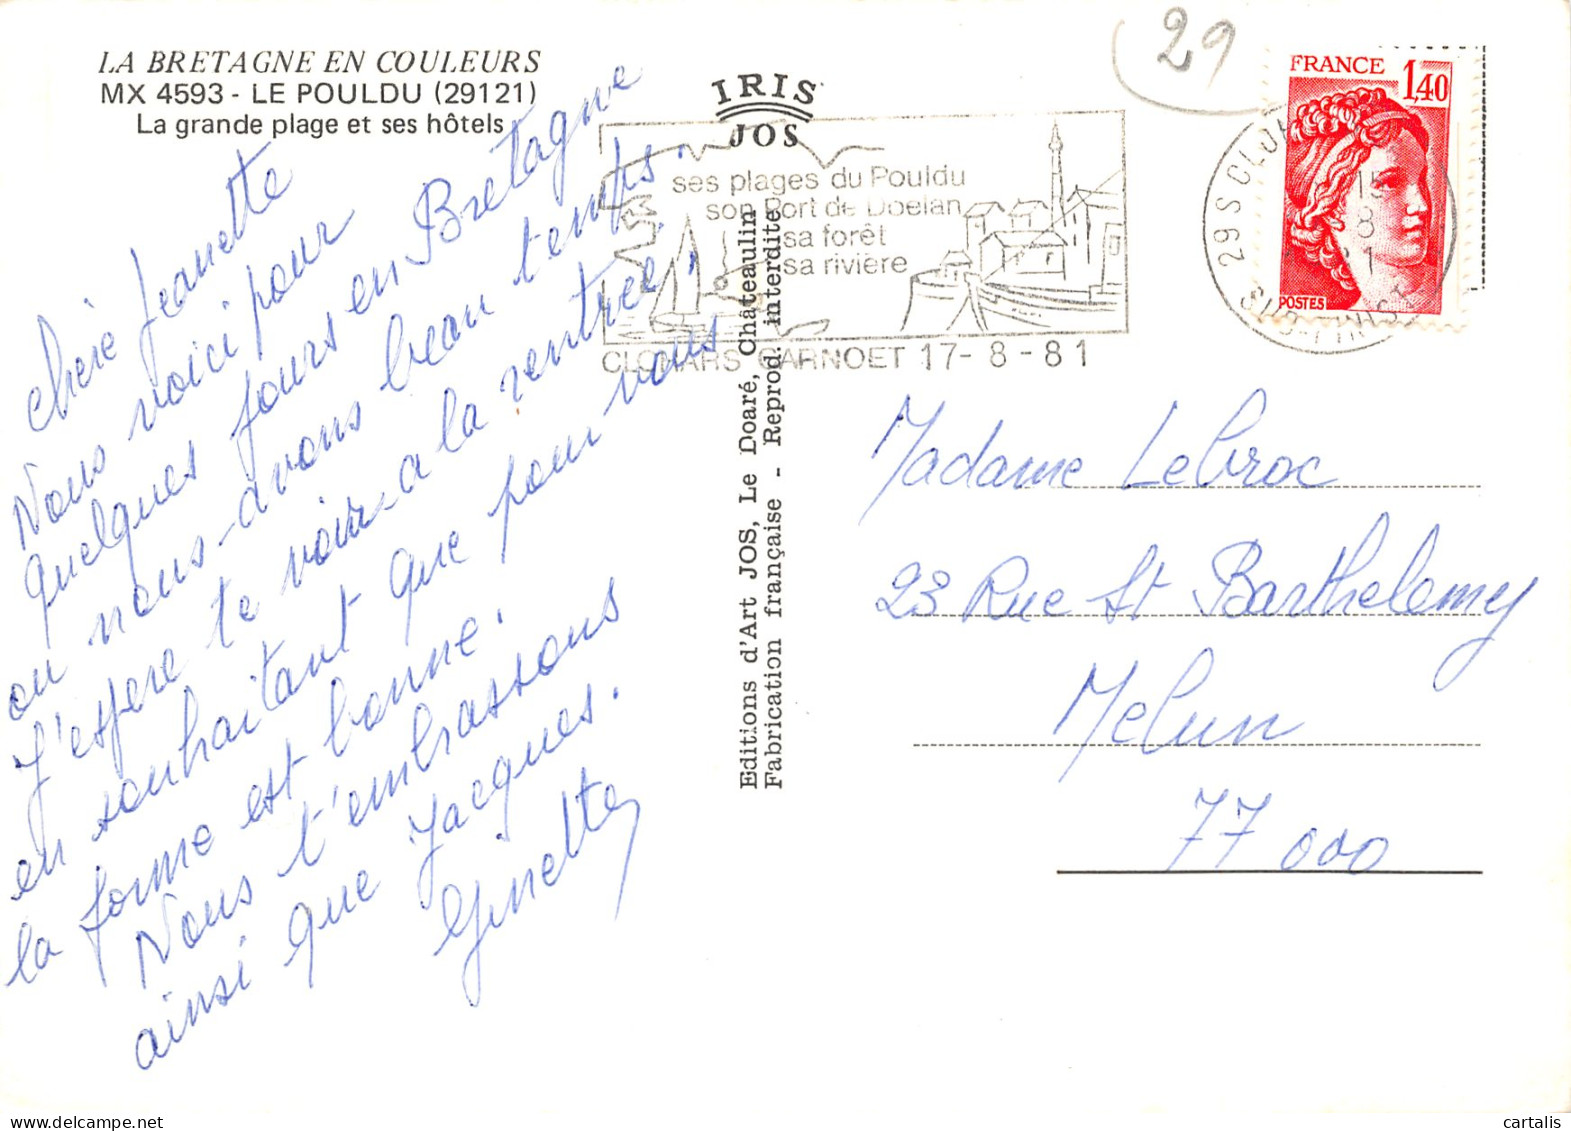 LA BRETAGNE EN COULEURS
MX 4593 - LE POULDU (29121)
La grande plage et ses hôtels
IRIS
JOS
29
FRANCE
1,40
POSTES
ses plages du Pouldu
son Port de Doelan
sa forêt
sa rivière
CLOHARS CARNOET 17-8-81
29 S CLOH
15
8
SUD-FINIST
Chère Jeanette
Nous voici pour
quelques jours en Bretagne
ou nous avons beau temps.
J'espere te voir a la rentree.
en souhaitant que pour vous
la forme est bonne.
Nous t'embrassons
ainsi que Jacques.
Ginette
Editions d'Art JOS, Le Doaré, Châteaulin
Fabrication française - Reprod. interdite
Madame Lebroc
23 Rue St Barthelemy
Melun
77 000
cartalis